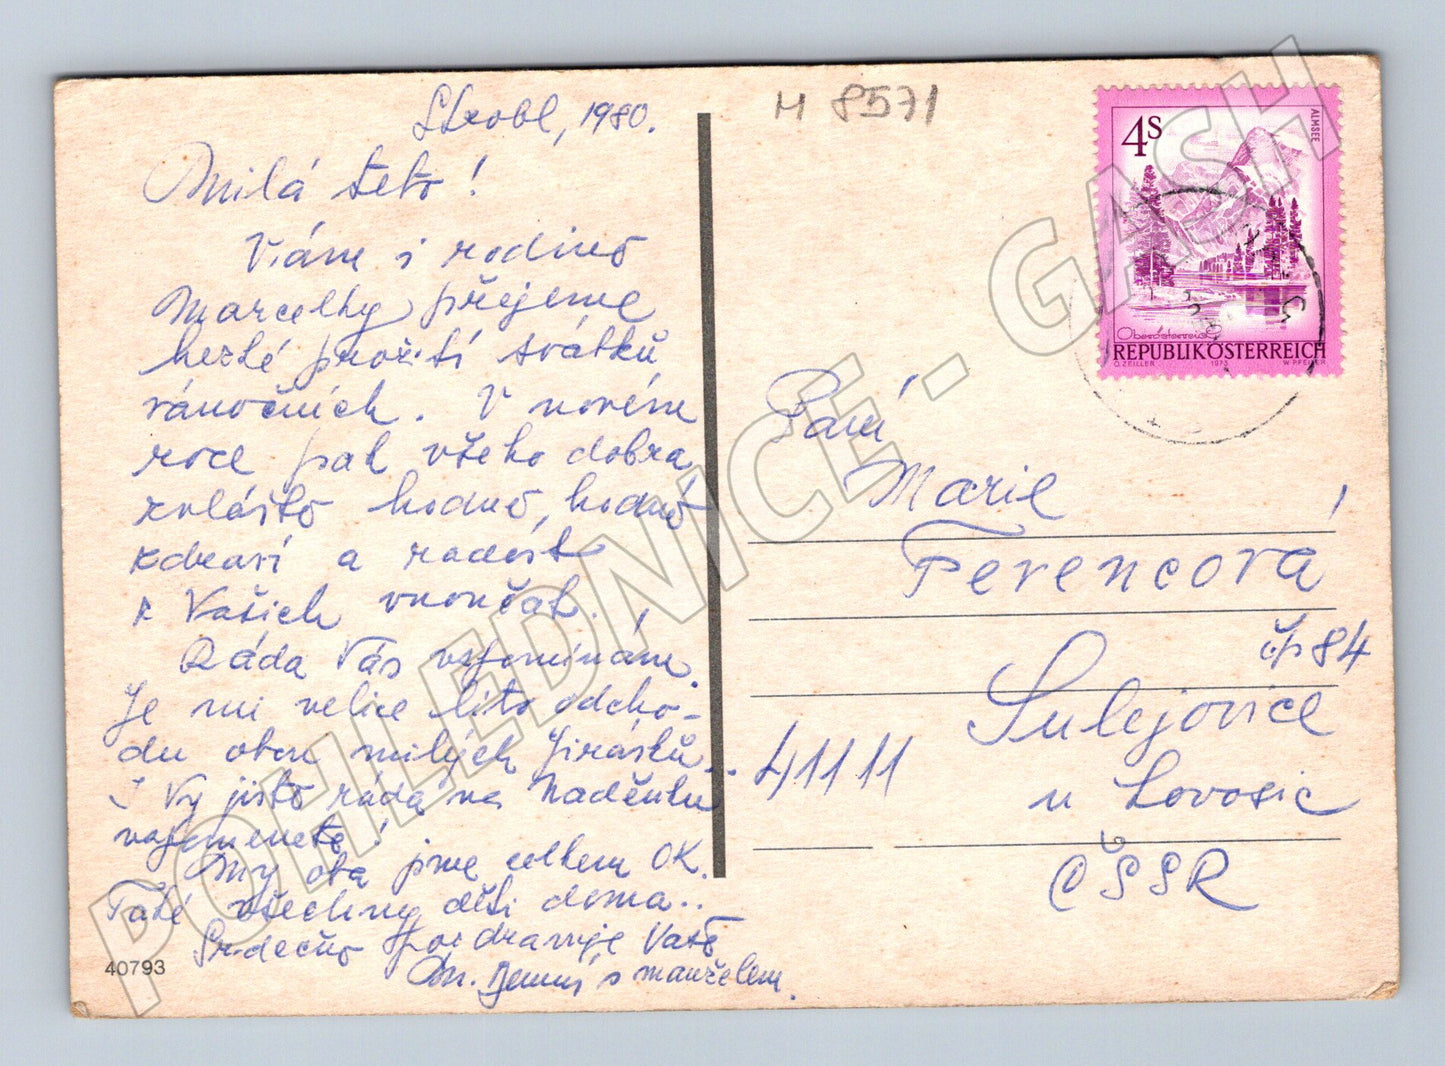 Strobl, 1980.
Milá teto!
Vám i rodině
Marcelky přejeme
hezké prožití svátků
vánočních. V novém
roce pak všeho dobra,
zvláště hodně, hodně
zdraví a radosti
z Vašich vnoučat.
Ráda Vás vzpomínám.
Je mi velice líto odcho-
du obou milých Jirásků..
I Vy jistě ráda na Naděnku
vzpomenete!
My oba jsme celkem OK.
Také všechny děti doma..
Srdečně pozdravuje Vaše
s manželem.
40793
H 8571
4S
ALMSEE
Oberösterreich
REPUBLIK ÖSTERREICH
O. ZEILER 1973 W. PFEILER
Paní
Marie
Ferencová
čp 84
Sulejovice
41111
u Lovosic
ČSSR
POHLEDNICE - GASH